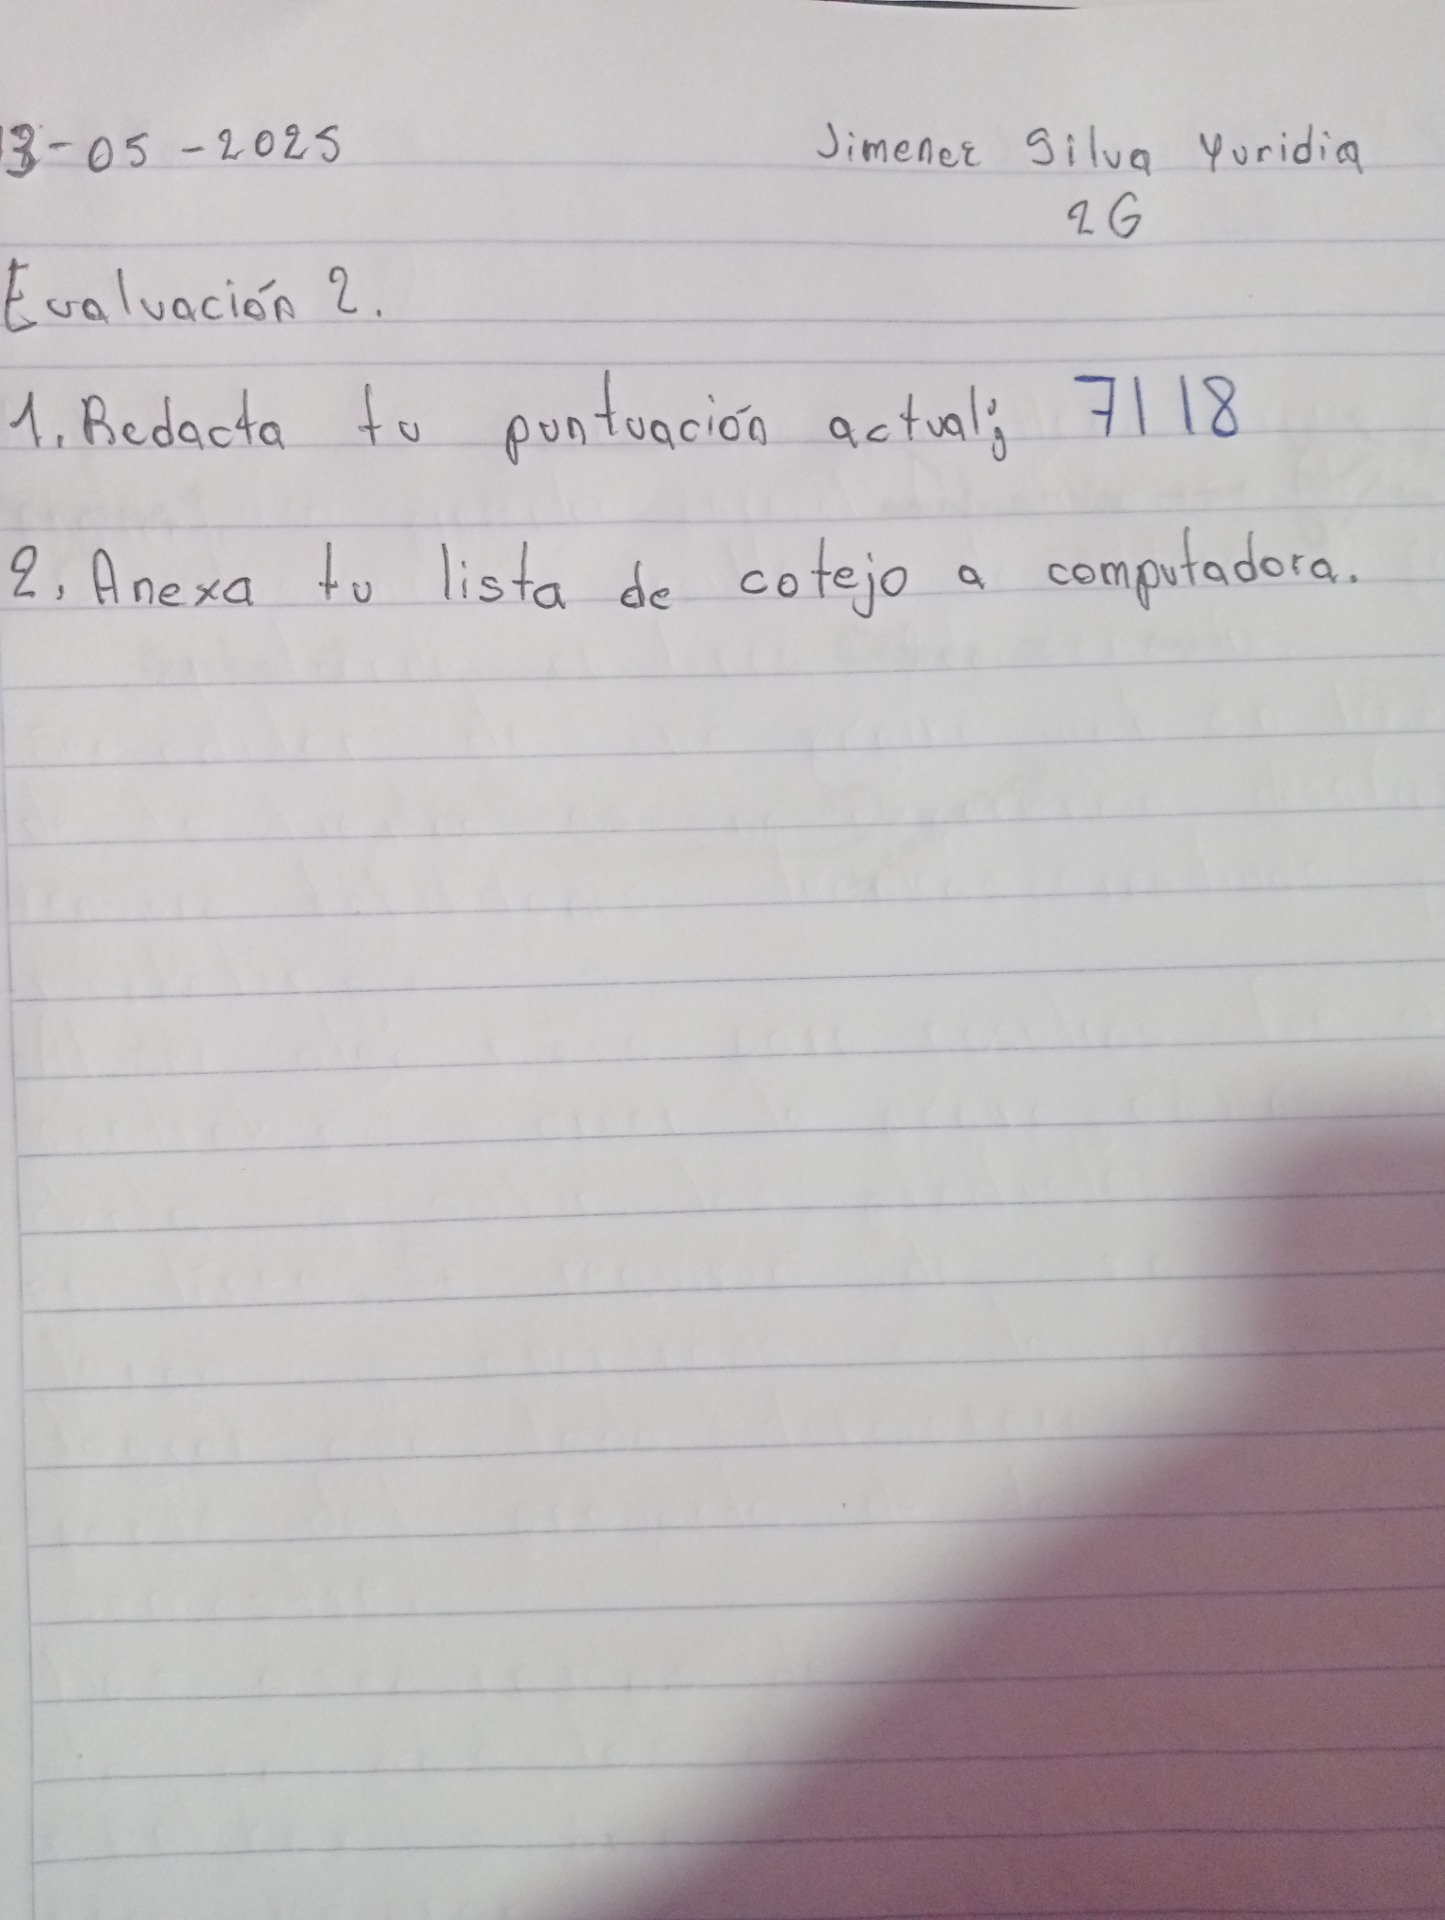 13-05-2025
Jimenez Silva Yuridia
2G
Evaluación 2.
1. Redacta tu puntuación actual; 7118
2. Anexa tu lista de cotejo a computadora.